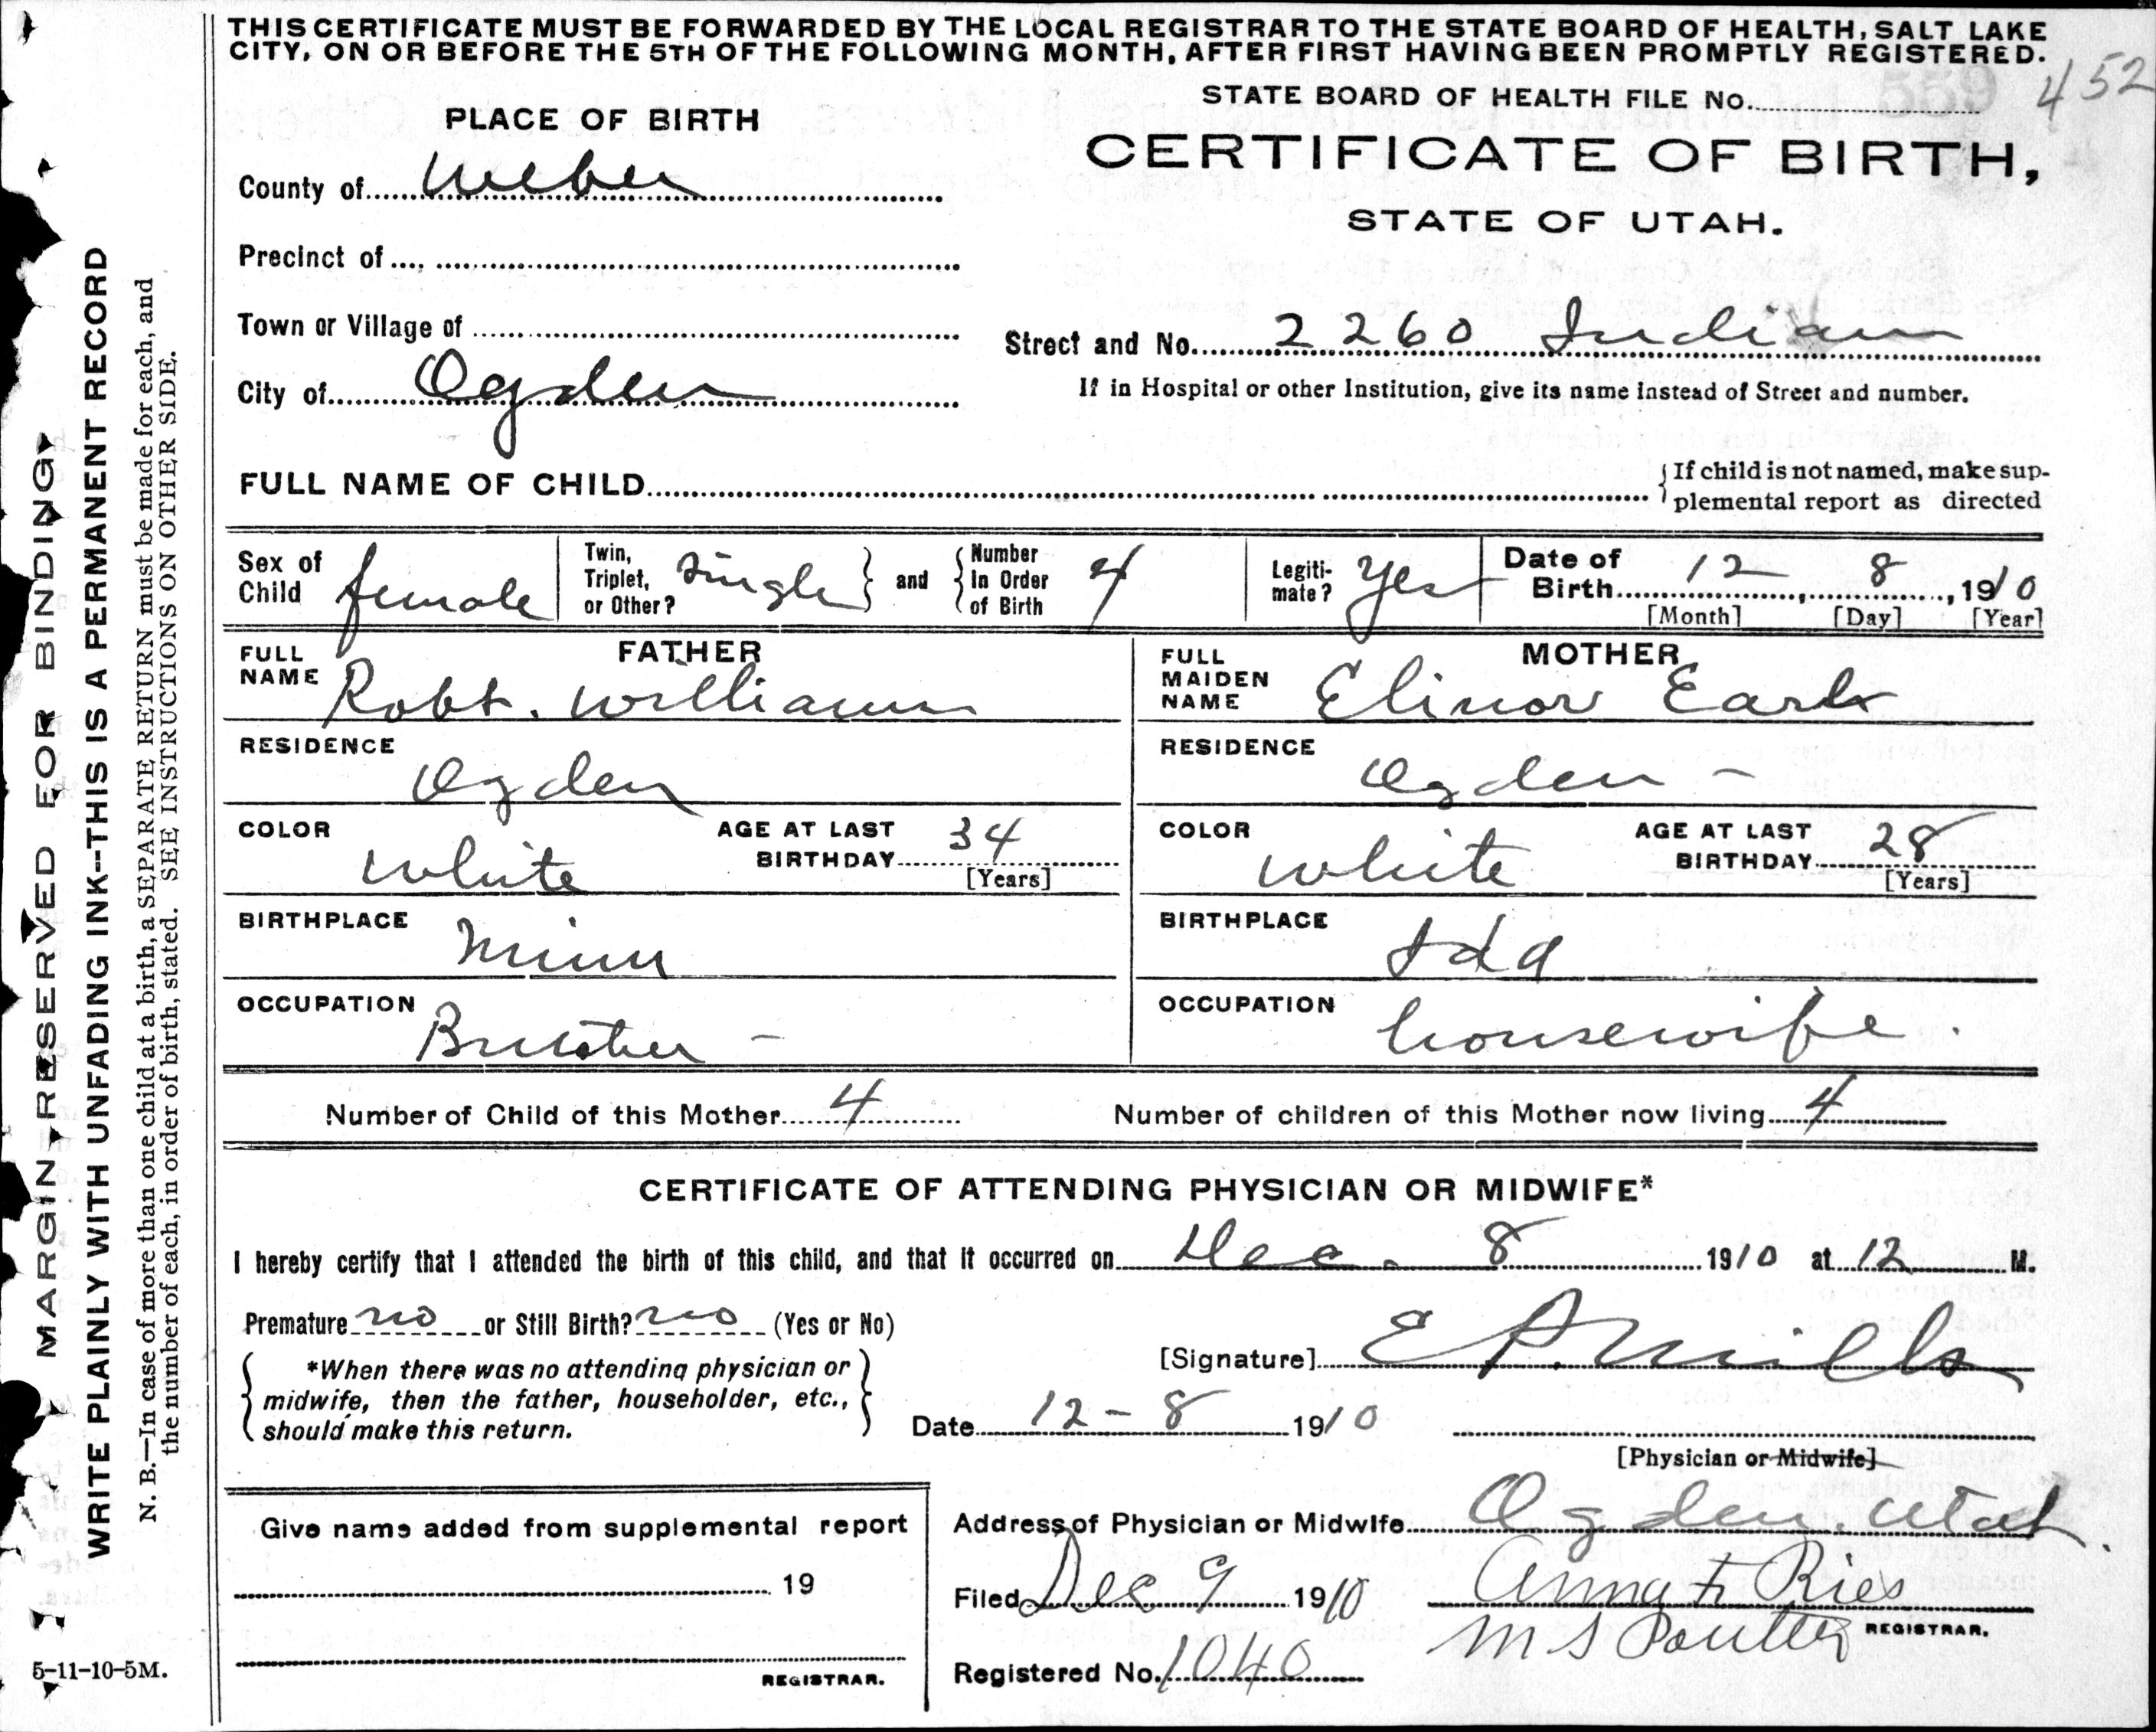 THIS CERTIFICATE MUST BE FORWARDED BY THE LOCAL REGISTRAR TO THE STATE BOARD OF HEALTH, SALT LAKE
CITY, ON OR BEFORE THE 5TH OF THE FOLLOWING MONTH, AFTER FIRST HAVING BEEN PROMPTLY REGISTERED.
STATE BOARD OF HEALTH FILE No. 452
PLACE OF BIRTH
CERTIFICATE OF BIRTH,
STATE OF UTAH.
County of Weber
Precinct of
Town or Village of
Street and No. 2260 Indian
If in Hospital or other Institution, give its name instead of Street and number.
City of Ogden
FULL NAME OF CHILD
{If child is not named, make sup-
plemental report as directed
Sex of Child female
Twin, Triplet, or Other? Single } and { Number In Order of Birth 4
Legiti-mate? Yes
Date of Birth 12, 8, 1910
[Month] [Day] [Year]
FATHER
FULL NAME Robt. Williams
RESIDENCE Ogden
COLOR White
AGE AT LAST BIRTHDAY 34
[Years]
BIRTHPLACE Minn
OCCUPATION Butcher -
MOTHER
FULL MAIDEN NAME Elinor Earl
RESIDENCE Ogden -
COLOR White
AGE AT LAST BIRTHDAY 28
[Years]
BIRTHPLACE Ida
OCCUPATION housewife.
Number of Child of this Mother 4
Number of children of this Mother now living 4
CERTIFICATE OF ATTENDING PHYSICIAN OR MIDWIFE*
I hereby certify that I attended the birth of this child, and that it occurred on Dec. 8 1910 at 12 M.
Premature no or Still Birth? no (Yes or No)
[Signature] E P. Mills
{ *When there was no attending physician or
midwife, then the father, householder, etc.,
should make this return. }
Date 12-8 1910
[Physician or Midwife]
Give name added from supplemental report
19
REGISTRAR.
Address of Physician or Midwife Ogden, Utah.
Filed Dec 9 1910
Anna F Ries
M S Poulter
REGISTRAR.
Registered No. 1040
MARGIN RESERVED FOR BINDING
WRITE PLAINLY WITH UNFADING INK--THIS IS A PERMANENT RECORD
N. B.—In case of more than one child at a birth, a SEPARATE RETURN must be made for each, and
the number of each, in order of birth, stated. SEE INSTRUCTIONS ON OTHER SIDE.
5-11-10-5M.